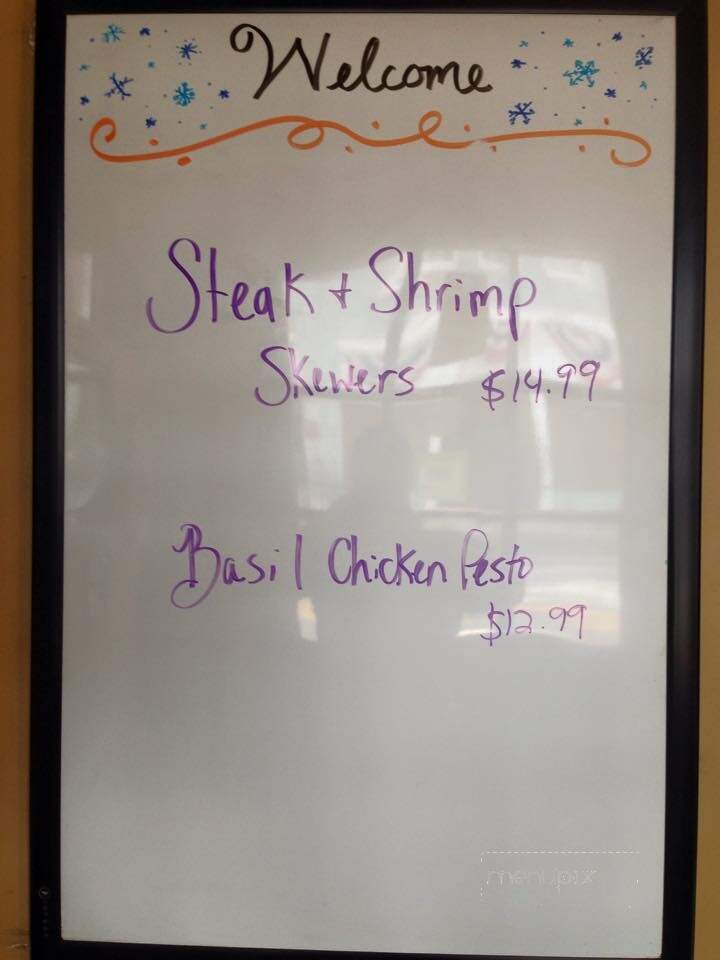 Welcome
Steak + Shrimp
Skewers $14.99
Basil Chicken Pesto
$12.99
menupix